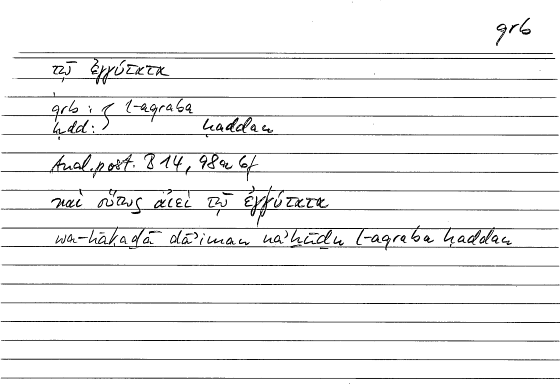 qrb
τῷ ἐγγύτατα
qrb : } l-aqraba
ḥdd : ḥaddan
Anal. post. B 14, 98a 6f
καὶ οὕτως αἰεὶ τῷ ἐγγύτατα
wa-hākaḏā dāʾiman naʾḫuḏu l-aqraba ḥaddan